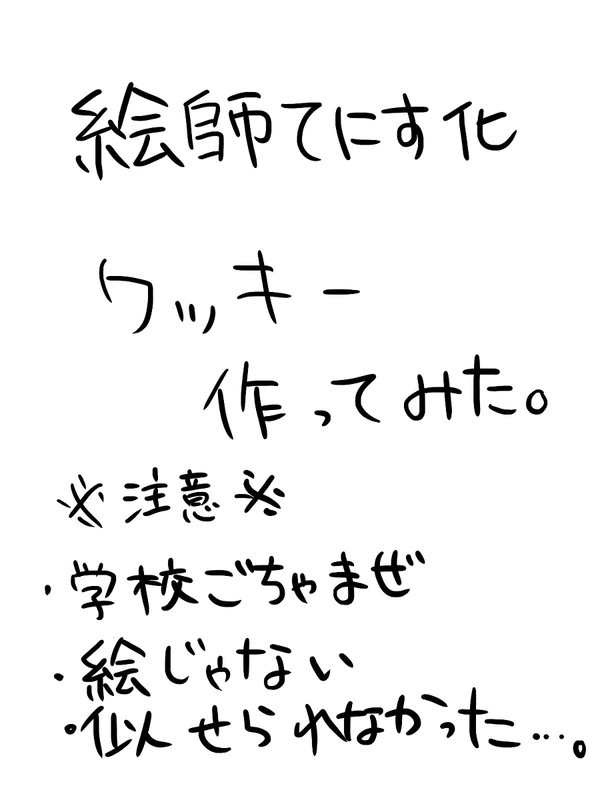 絵師てにす化
クッキー
作ってみた。
※注意※
・学校ごちゃまぜ
・絵じゃない
・似せられなかった…。